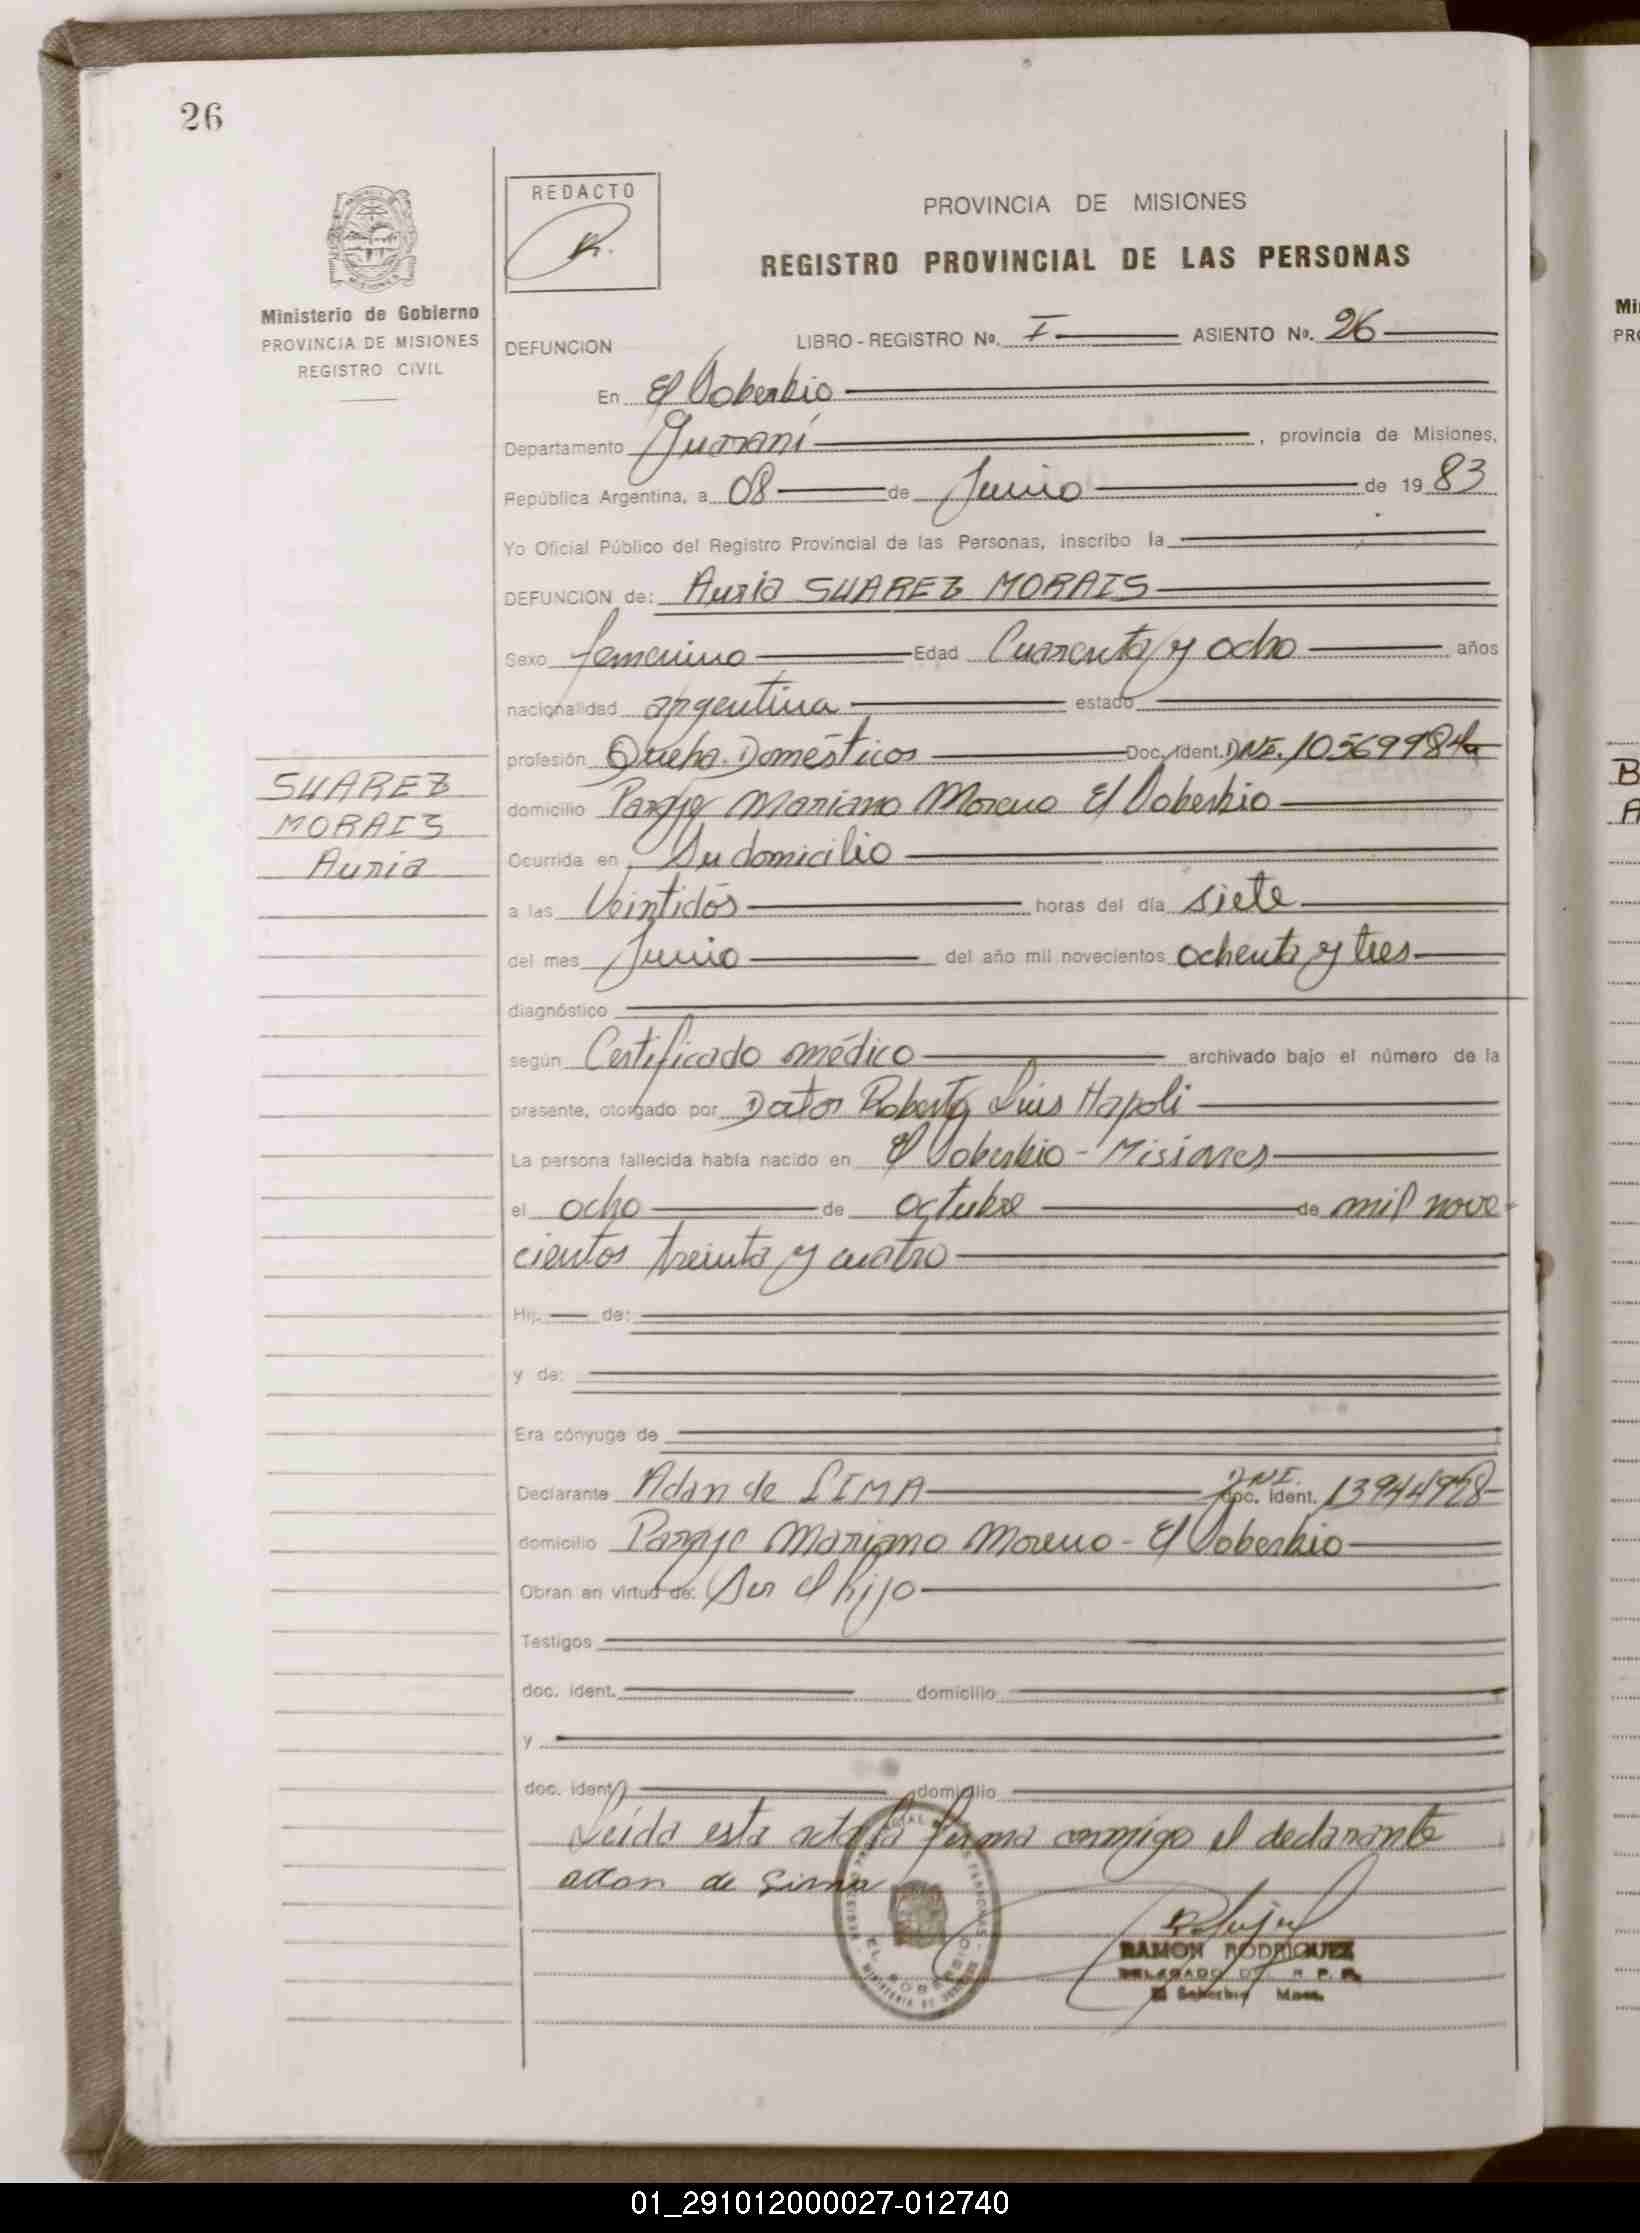 26
REDACTO
PROVINCIA DE MISIONES
REGISTRO PROVINCIAL DE LAS PERSONAS
Ministerio de Gobierno
PROVINCIA DE MISIONES
REGISTRO CIVIL
DEFUNCION LIBRO - REGISTRO No. I ASIENTO No. 26
En El Soberbio
Departamento Guaraní, provincia de Misiones,
República Argentina, a 08 de Junio de 1983
Yo Oficial Público del Registro Provincial de las Personas, inscribo la
DEFUNCION de: Auria SUAREZ MORAIS
Sexo femenino Edad Cuarenta y ocho años
nacionalidad argentina estado
profesión Queha. Domésticos Doc. Ident. DNI. 10569984
SUAREZ
MORAIS
Auria
domicilio Paraje Mariano Moreno El Soberbio
Ocurrida en Su domicilio
a las Veintidós horas del día siete
del mes Junio del año mil novecientos ochenta y tres
diagnóstico
según Certificado médico archivado bajo el número de la
presente, otorgado por Doctor Roberto Luis Napoli
La persona fallecida había nacido en El Soberbio - Misiones
el ocho de octubre de mil nove-
cientos treinta y cuatro
Hij. de:
y de:
Era cónyuge de
Declarante Adan de LIMA DNI. doc. ident. 13944978
domicilio Paraje Mariano Moreno - El Soberbio
Obran en virtud de: Ser el hijo
Testigos
doc. ident. domicilio
y
doc. ident. domicilio
Leída esta acta la firma conmigo el declarante
adan de Lima
EL SOBERBIO
RAMON RODRIGUEZ
DELEGADO DEL R. P. P.
El Soberbio Mnes.
01_291012000027-012740